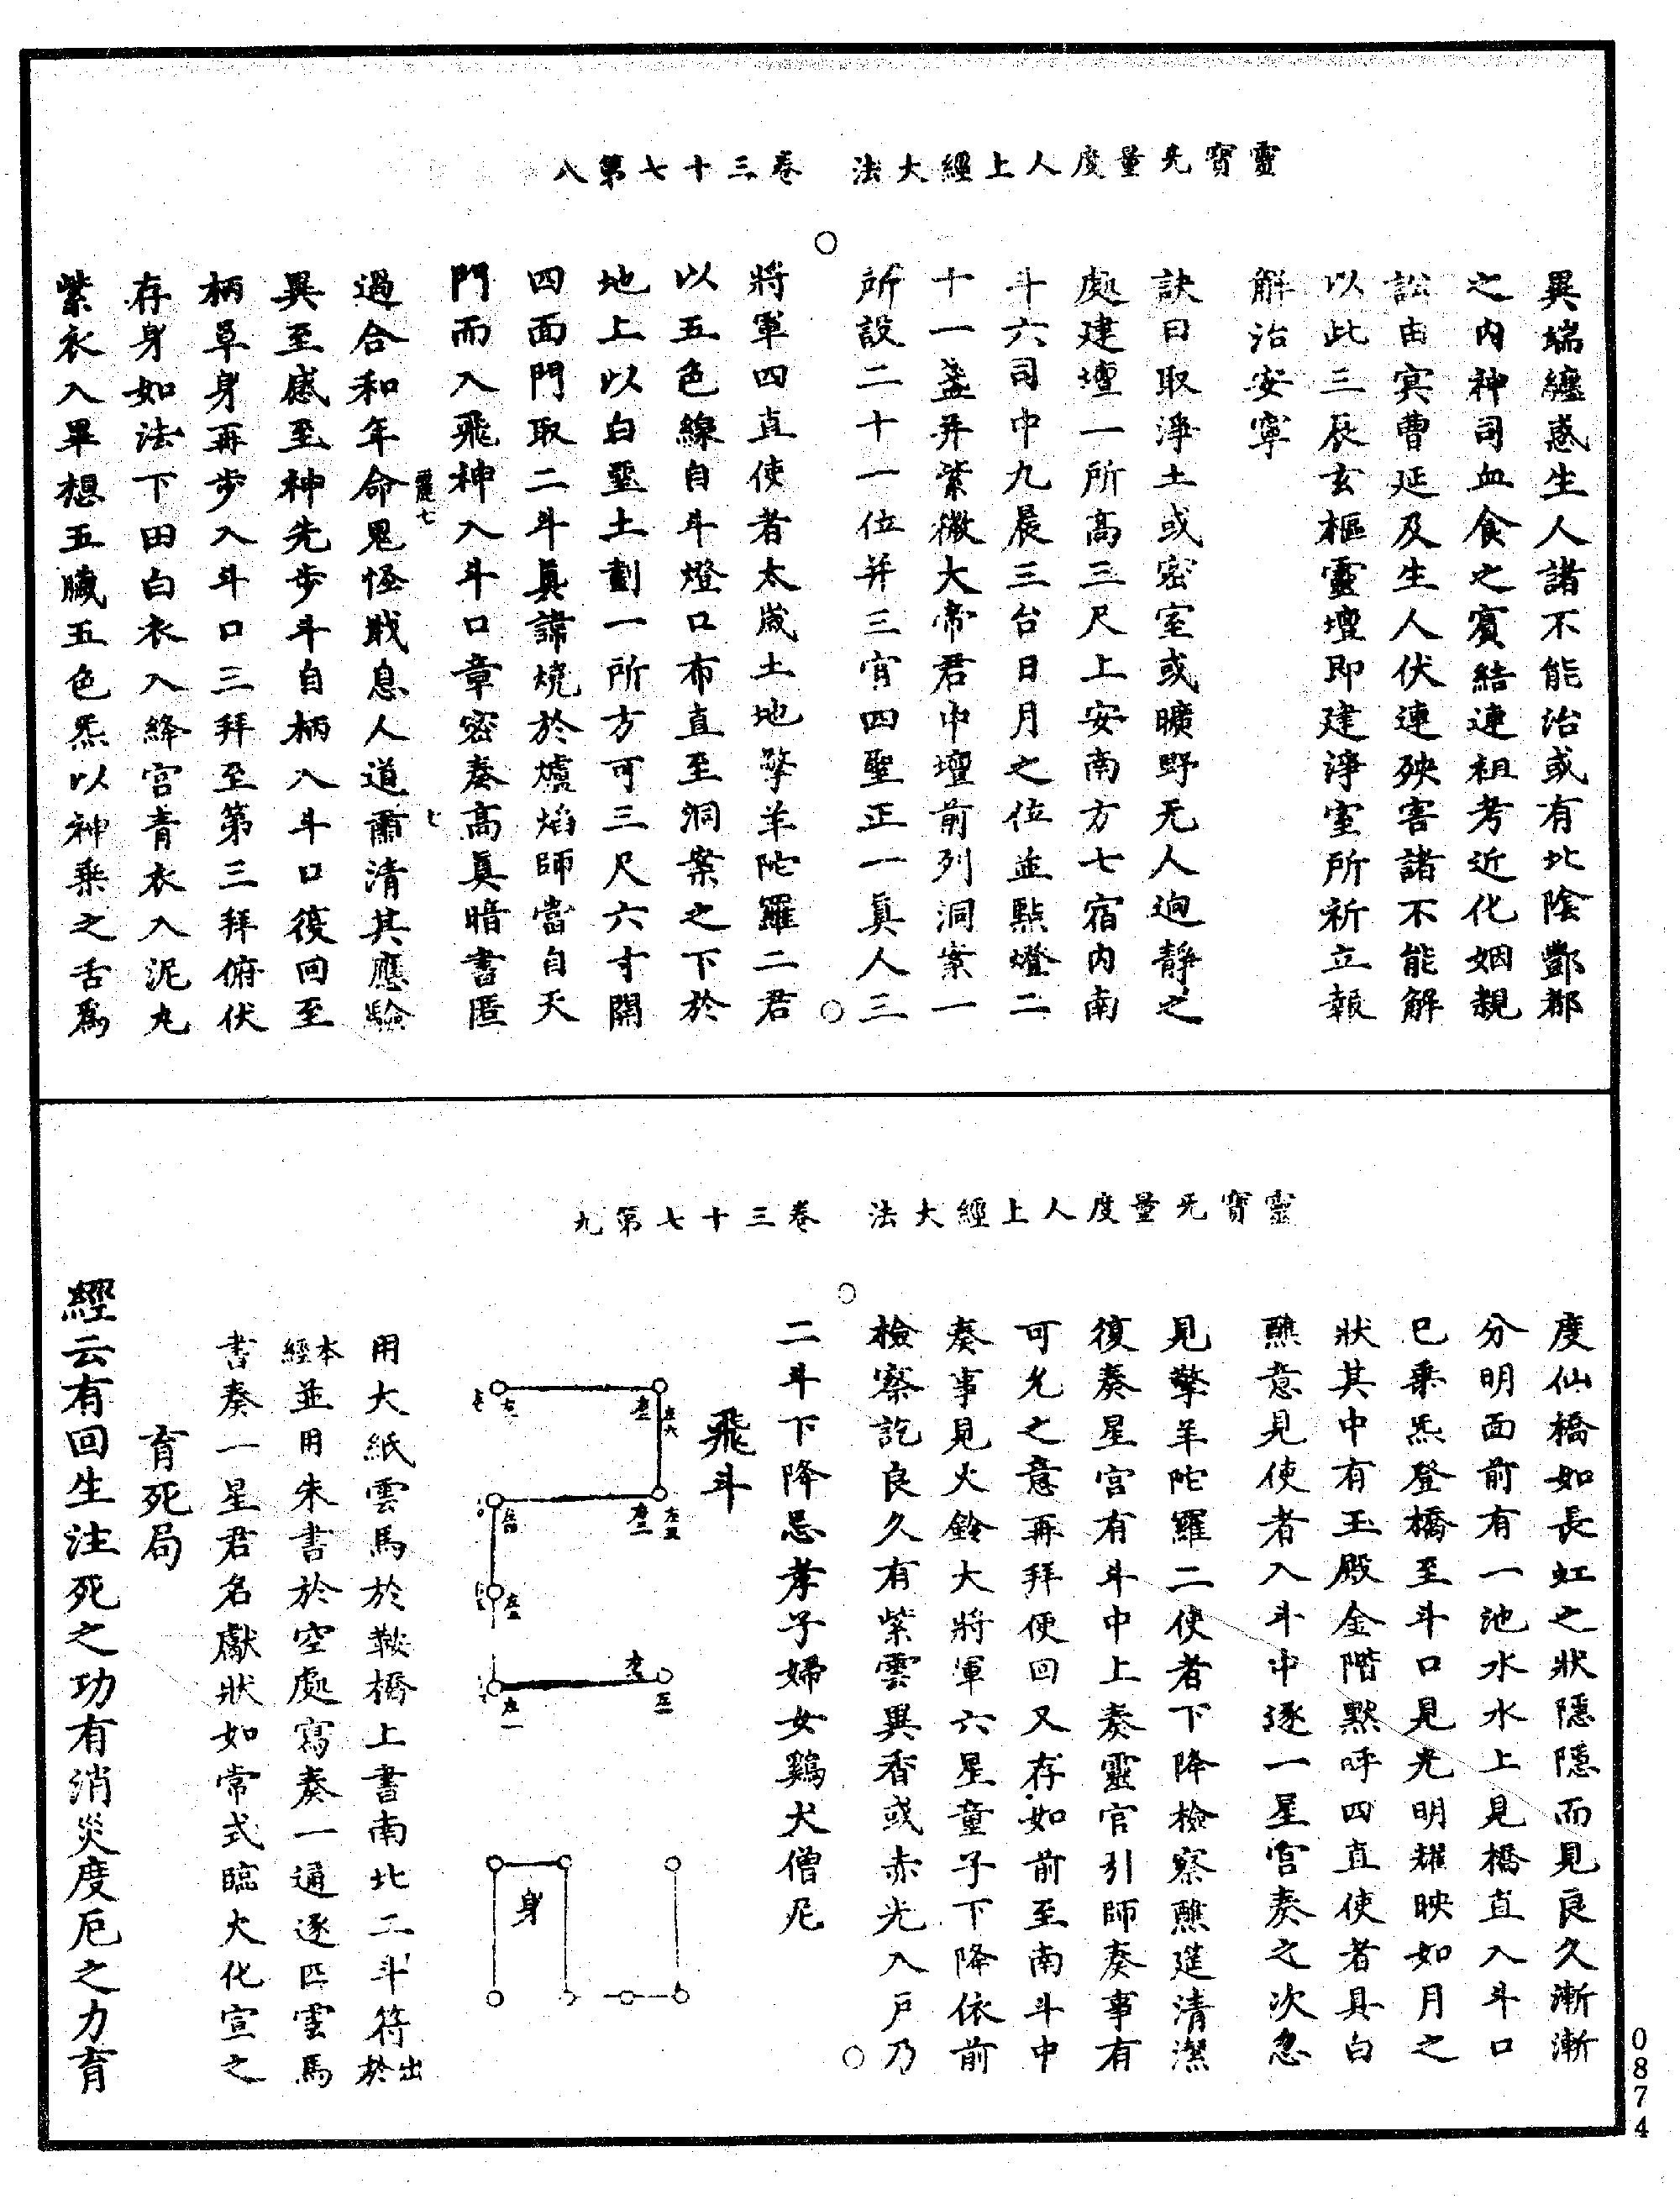 靈寶无量度人上經大法　卷三十七第八
異端纏惑生人諸不能治或有北陰酆都
之內神司血食之賓結連祖考近化姻親
訟由冥曹延及生人伏連殃害諸不能解
以此三辰玄樞靈壇即建淨室所祈立報
解治安寧
訣曰取淨土或密室或曠野无人逈靜之
處建壇一所高三尺上安南方七宿內南
斗六司中九晨三台日月之位並點燈二
十一盞并紫微大帝君中壇前列洞案一
所設二十一位并三官四聖正一眞人三
將軍四直使者太歲土地擎羊陀羅二君
以五色線自斗燈口布直至洞案之下於
地上以白堊土劃一所方可三尺六寸開
四面門取二斗眞諱燒於爐焰師當自天
門而入飛神入斗口章密奏高眞暗書匿
過合和年命鬼怪戢息人道肅清其應驗
異至感至神先步斗自柄入斗口復回至
柄草身再步入斗口三拜至第三拜俯伏
存身如法下田白衣入絳宮青衣入泥丸
紫衣入畢想五臟五色炁以神乘之舌爲
靈寶无量度人上經大法　卷三十七第九
度仙橋如長虹之狀隱隱而見良久漸漸
分明面前有一池水水上見橋直入斗口
已乘炁登橋至斗口見光明耀映如月之
狀其中有玉殿金階默呼四直使者具白
醮意見使者入斗中逐一星宮奏之次忽
見擎羊陀羅二使者下降檢察醮筵清潔
復奏星宮有斗中上奏靈官引師奏事有
可允之意再拜便回又存如前至南斗中
奏事見火鈴大將軍六星童子下降依前
檢察訖良久有紫雲異香或赤光入戶乃
二斗下降忌孝子婦女鷄犬僧尼
飛斗
身
用大紙雲馬於鞍橋上書南北二斗符出於
本經並用朱書於空處寫奏一通逐匹雲馬
書奏一星君名獻狀如常式臨火化宣之
育死局
經云有回生注死之功有消災度厄之力育
0874